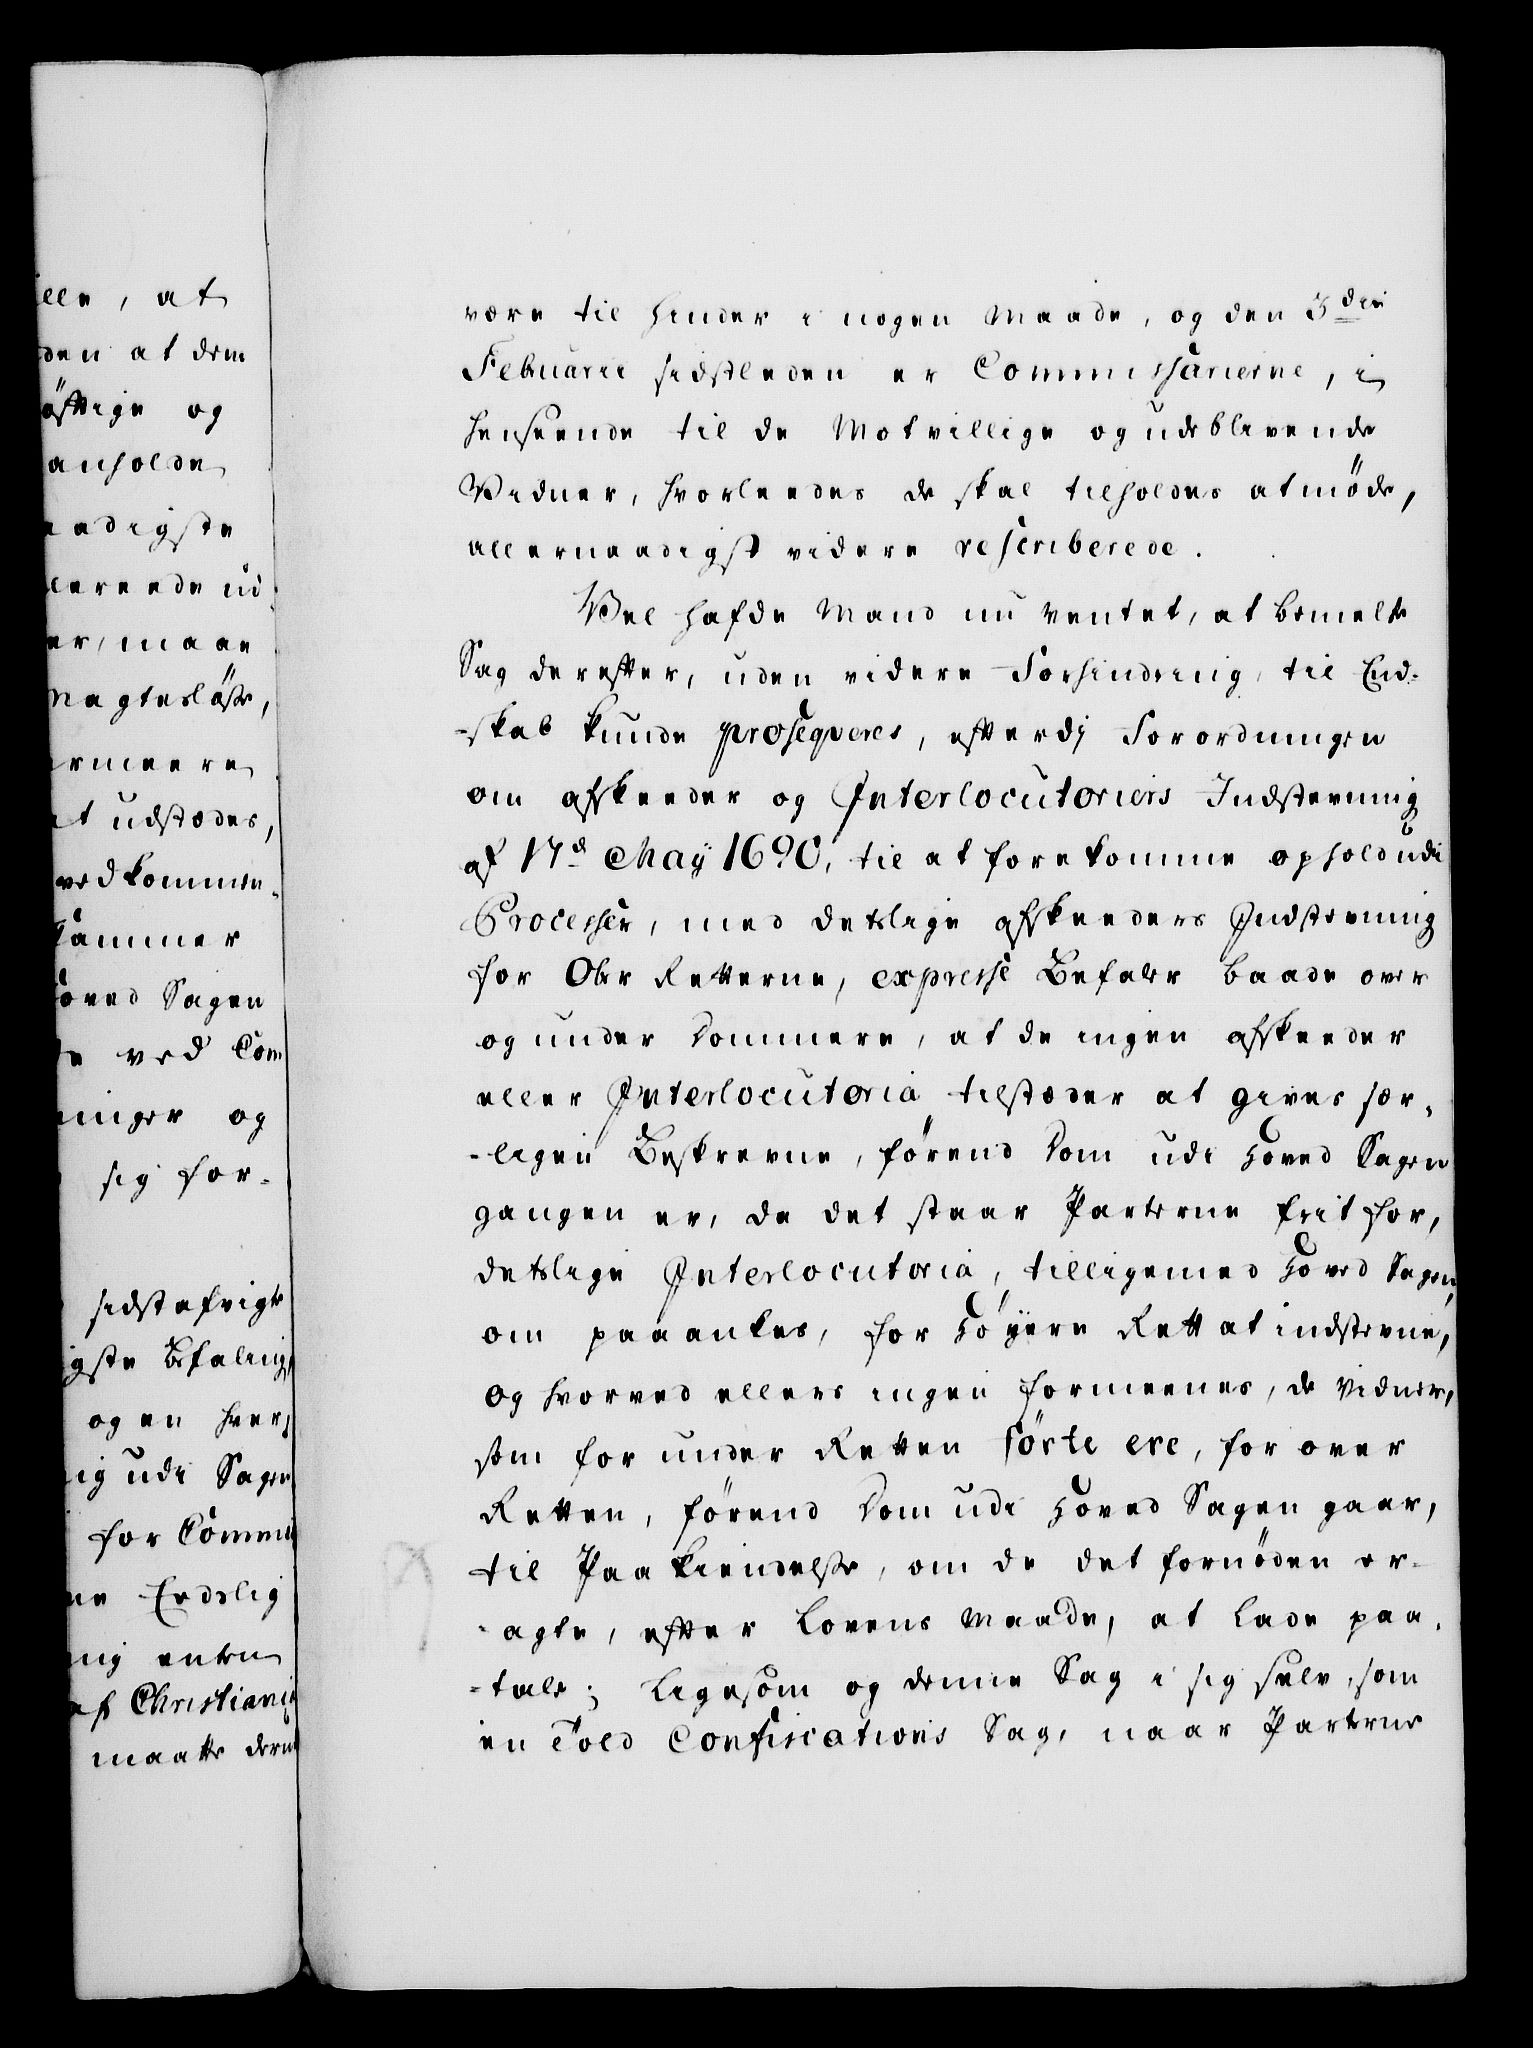 ille, at
den at dem
öftige og
anholde
aadigste
llereede ud-
er, maae
Magtesløse,
ermeere
at udstædes,
vedkommen-
Kammer
Hoved Sagen
ved Com
ninger og
sig for-
sidst afvigte
igste Befaling,
og en hver,
ig udi Sagen
for Commi
Endelig
ing enten
af Christiania
maatte derm
være til hinder i nogen Maade, og den 3die
Februarii sidstleden er Commissarierne, i
henseende til de Motvillige og udeblivende
Vidner, hvorleedes de skal tilholdes at møde,
allernaadigst videre rescriberede.
Vel hafde Mand nu ventet, at bemelte
Sag derefter, uden videre Forhindring, til End-
-skab kunde proseqveres, efterdj Forordningen
om afskeeder og Interlocutoriers Indstevning
af 17d May 1690, til at forekomme ophold udi
Processer, med deslige afskeeders Indstevning
for Ober Retterne, expresse Befaler baade over
og under Dommere, at de ingen afskeeder
eller Interlocutoria tilstæder at gives sær-
-ligen Beskrevne, førend Dom udi Hoved Sagen
gangen er, da det staar Parterne frit for,
deslige Interlocutoria, tilligemed Hoved Sagen,
om paaankes, for Höyere Rett at indstevne,
og hvorved ellers ingen formeenes, de Vidner,
som for under Retten förte ere, for over
Retten, förend Dom udi Hoved Sagen gaar,
til Paakiendelse, om de det fornöden er-
-agte, efter Lovens Maade, at lade paa-
-tale; Ligesom og denne Sag i sig selv, som
en Told Confiscations Sag, naar Parterne